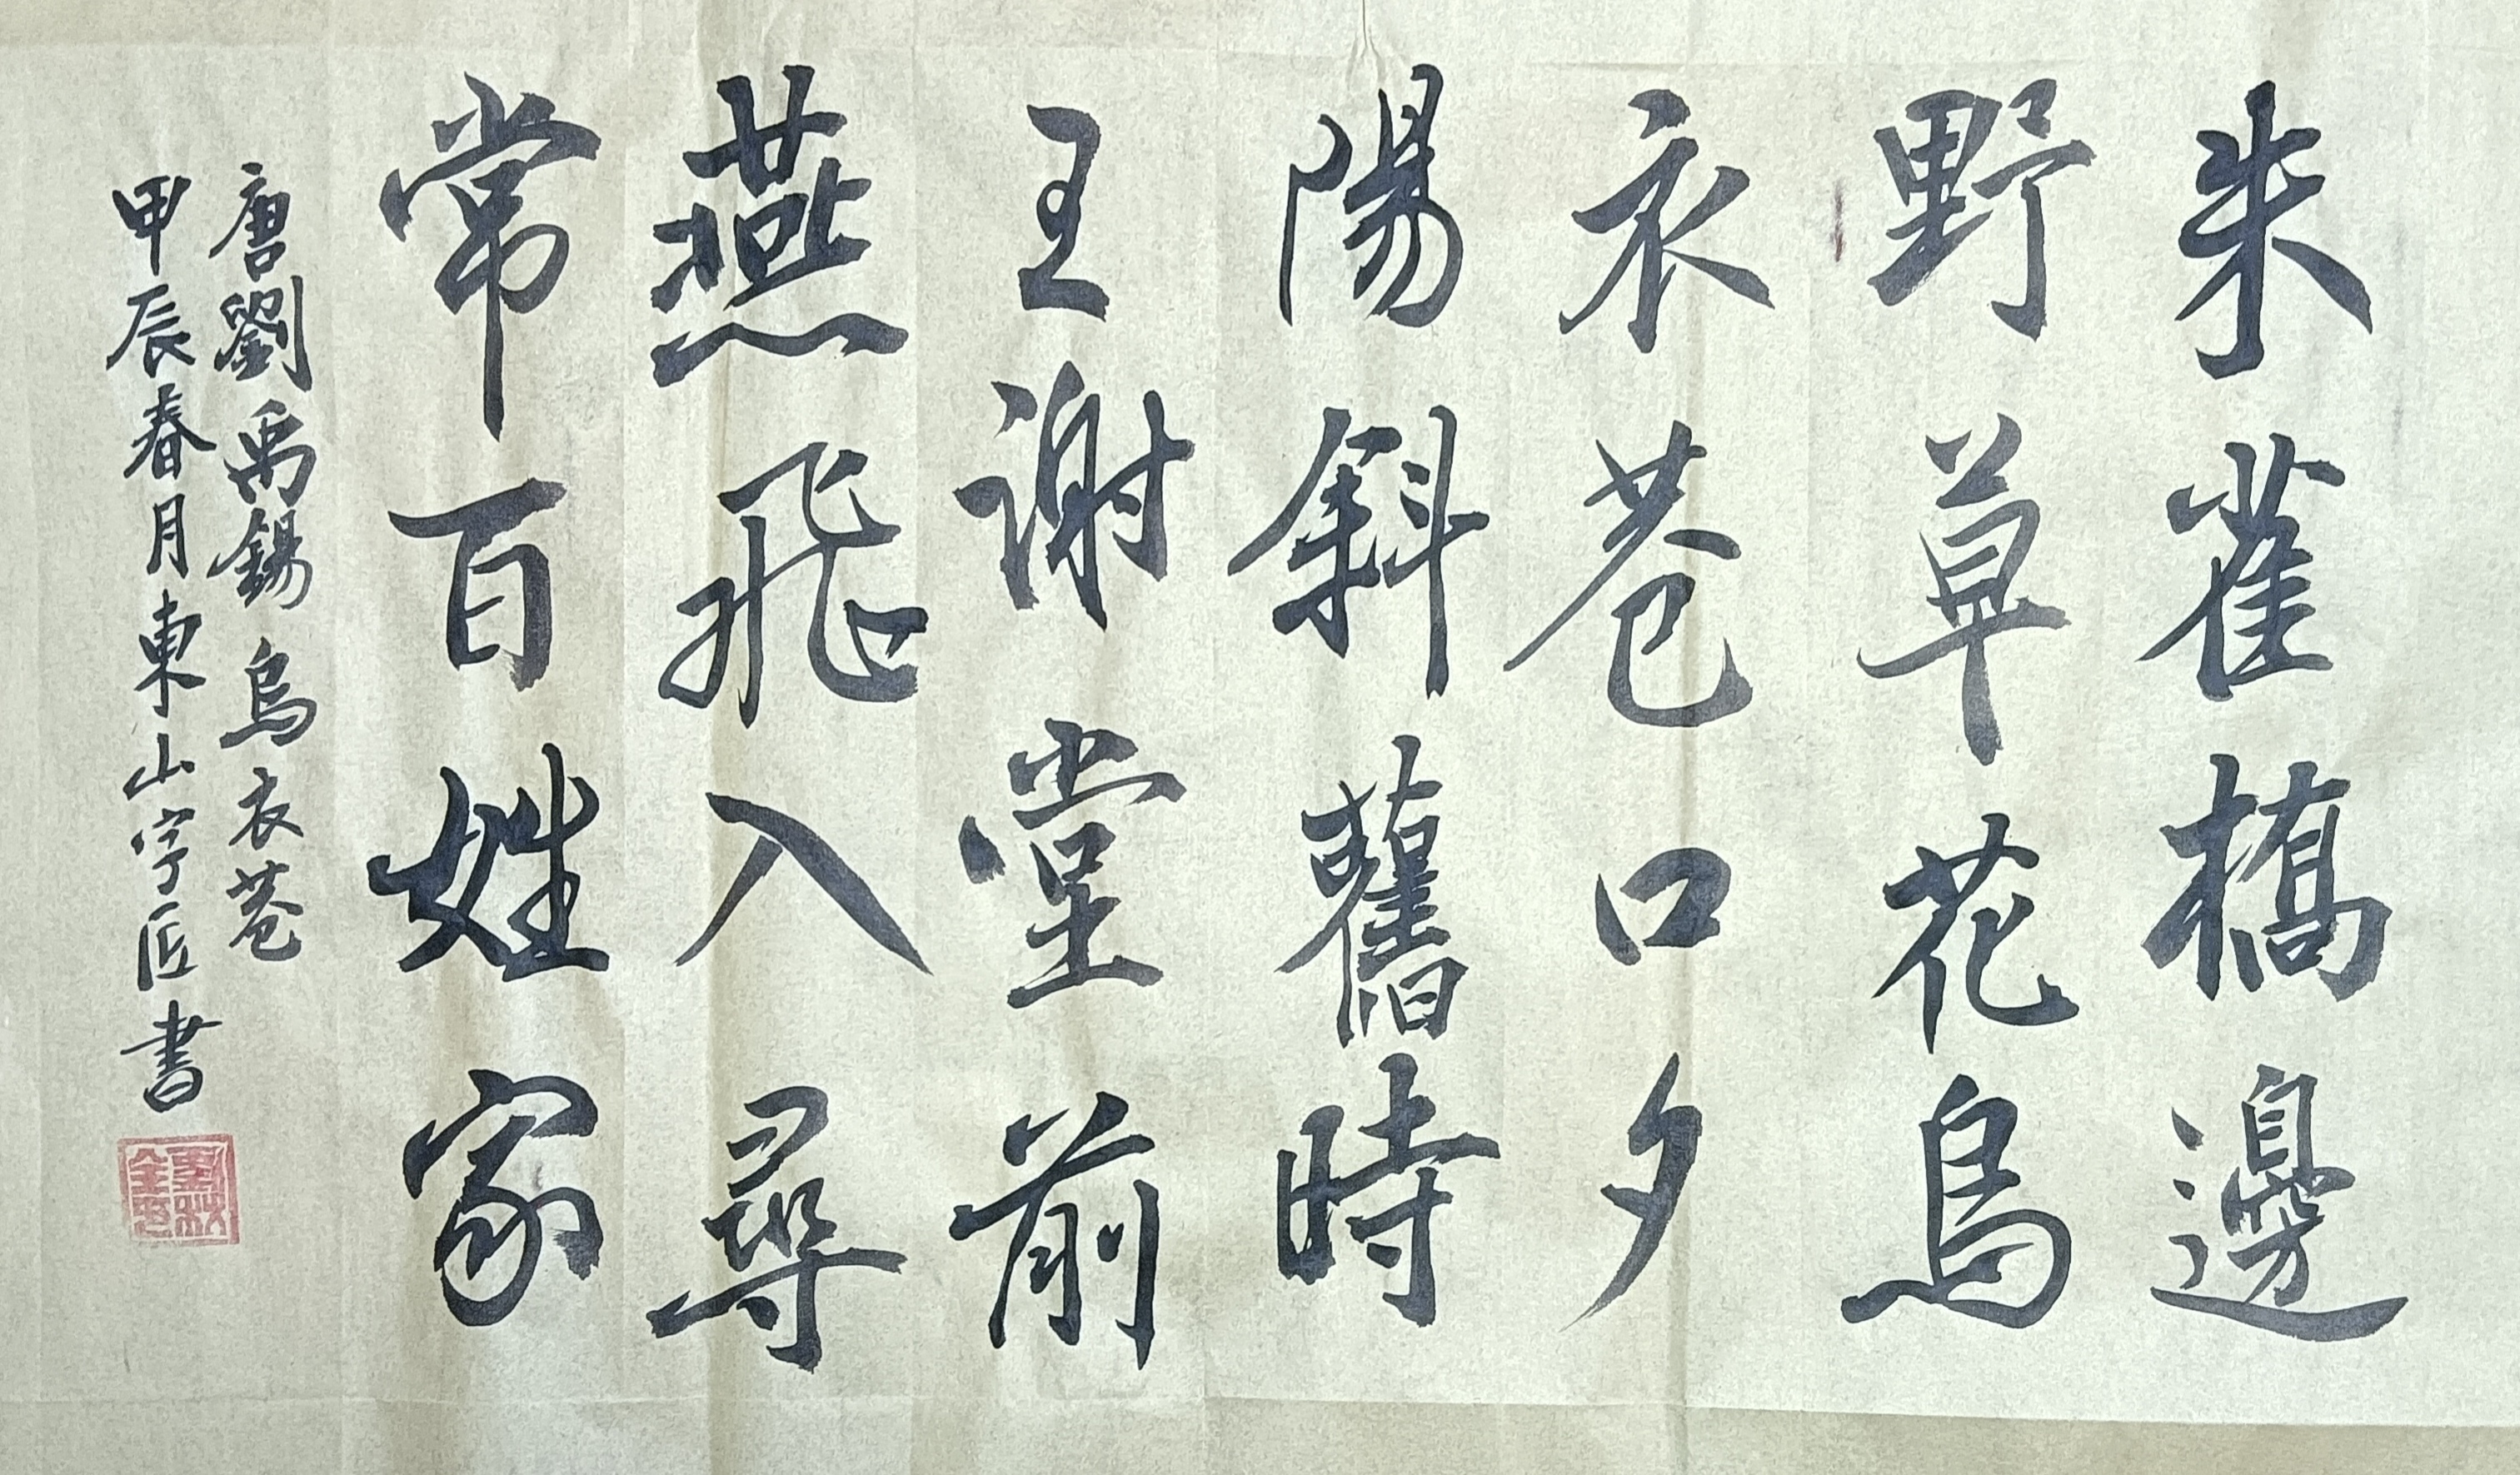 朱雀橋邊
野草花烏
衣巷口夕
陽斜舊時
王謝堂前
燕飛入尋
常百姓家
唐劉禹錫烏衣巷
甲辰春月東山字匠書